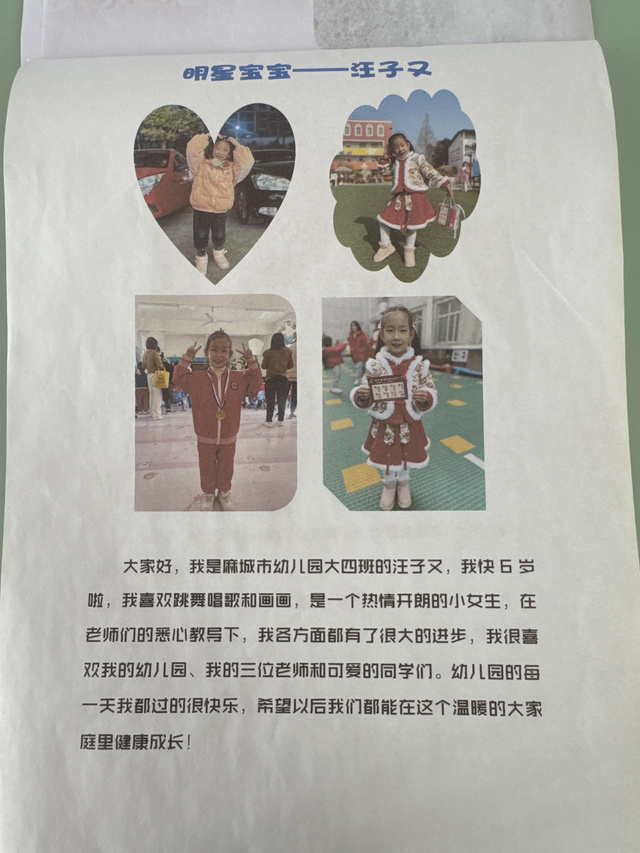 明星宝宝——汪子又
大家好，我是麻城市幼儿园大四班的汪子又，我快 6 岁
啦，我喜欢跳舞唱歌和画画，是一个热情开朗的小女生，在
老师们的悉心教导下，我各方面都有了很大的进步，我很喜
欢我的幼儿园、我的三位老师和可爱的同学们。幼儿园的每
一天我都过的很快乐，希望以后我们都能在这个温暖的大家
庭里健康成长！